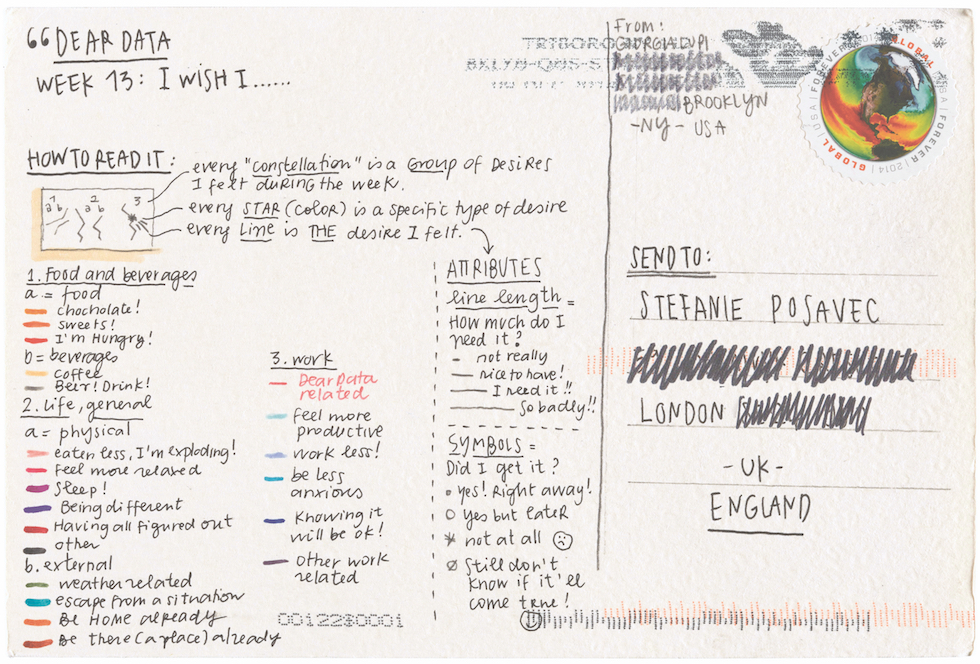 “DEAR DATA
WEEK 13: I WISH I......
HOW TO READ IT:
every "constellation" is a GROUP of DESIRES
I felt DURING the week.
every STAR (COLOR) is a specific type of desire
every LINE is THE desire I felt.
1 2 3
a b a b
1. Food and beverages
a = food
chocholate!
sweets!
I'm Hungry!
b = beverages
coffee
Beer! Drink!
2. Life, general
a = physical
eaten less, I'm exploding!
feel more relaxed
Sleep!
Being different
Having all figured out
other
b. external
weather related
escape from a situation
Be Home already
Be there (a place) already
3. work
Dear Data
related
feel more
productive
work less!
be less
anxious
Knowing it
will be ok!
other work
related
ATTRIBUTES
line length =
How much do I
need it?
not really
nice to have!
I need it!!
So badly!!
SYMBOLS =
Did I get it?
yes! Right away!
yes but later
not at all
Still don't
know if it'll
come true!
0012280001
From:
GIORGIA LUPI
BROOKLYN
-NY- USA
TRIBORO
BKLYN-QNS-S
GLOBAL | USA | FOREVER | 2014 | GLOBAL | USA | FOREVER | 2014
SEND TO:
STEFANIE POSAVEC
LONDON
-UK-
ENGLAND